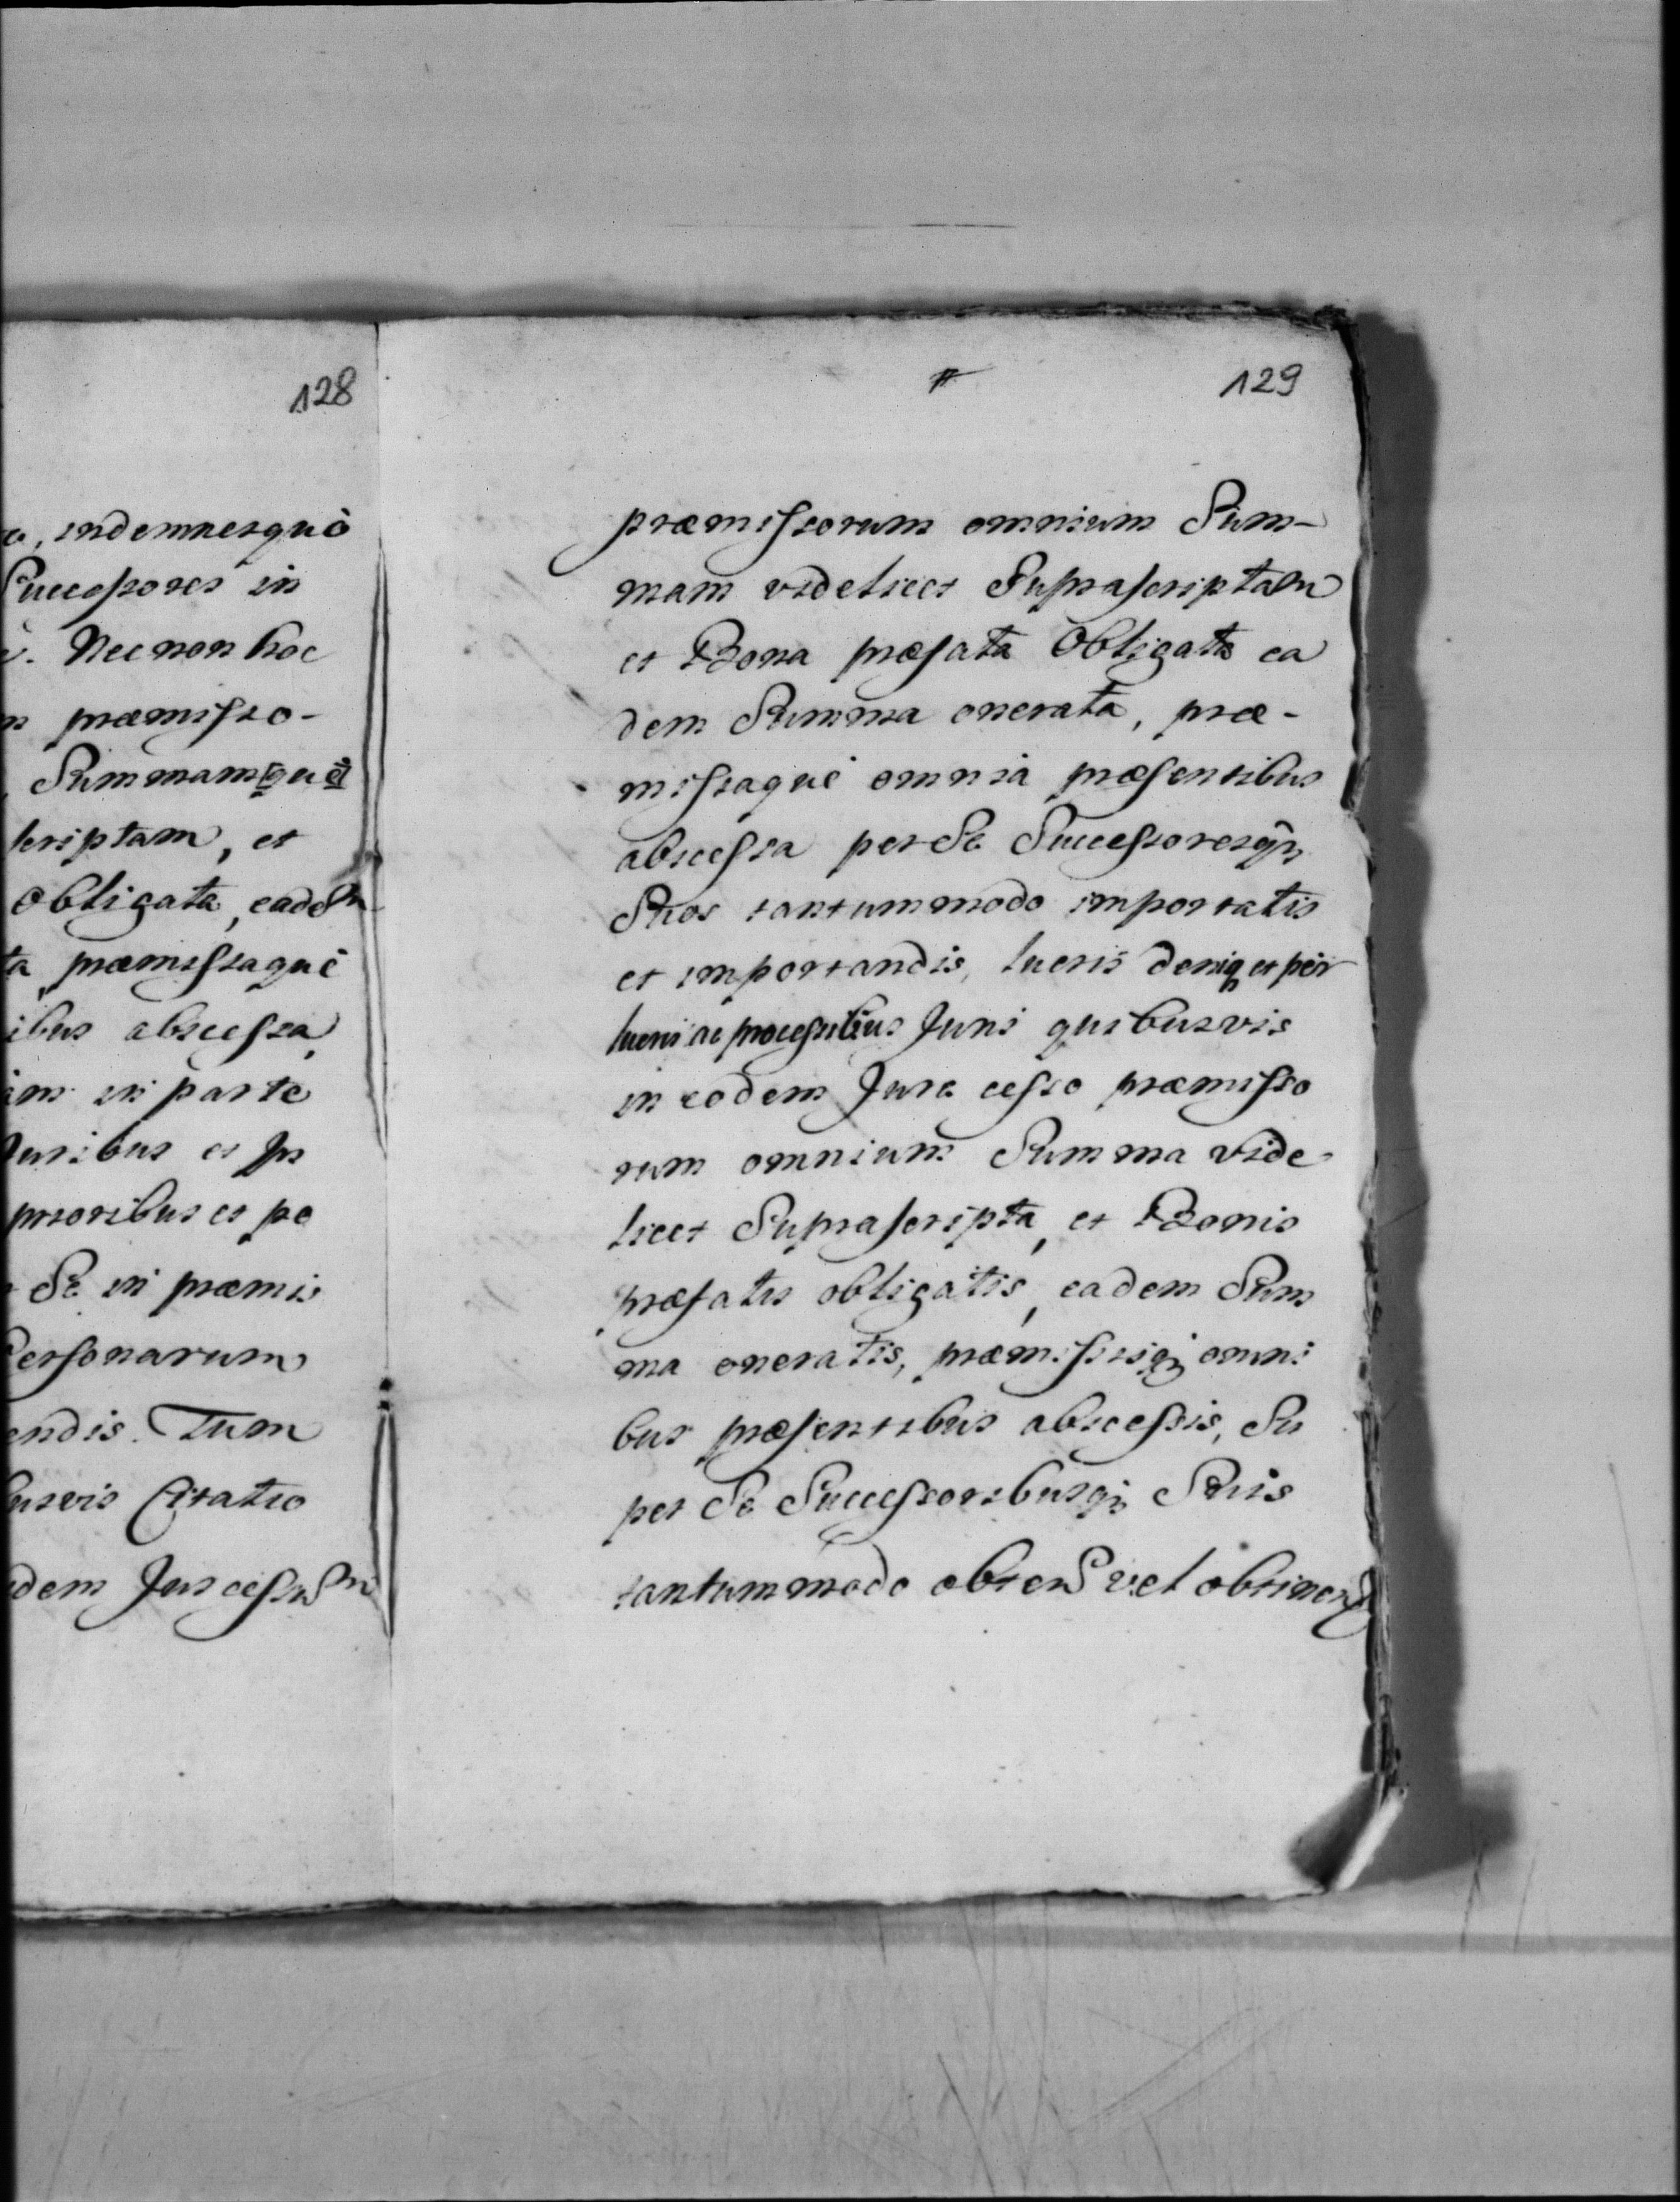 128
indemnesquè
Successores in
Necnon hoc
præmisso-
Summamquè
scriptam, et
Obligata, eadem
ta præmissaquè
ibus abscessa,
in parte
Juribus et In
prioribus et po
Se in præmis
Personarum
endis. Tum
busvis Citatio
dem Jus cessum
129
præmissorum omnium Sum-
mam videlicet Suprascriptam
et Bona præfata Obligata ea
dem Summa onerata, præ-
missaquè omnia præsentibus
abscessa per Se Successoresq3
Suos tantummodo importatis
et importandis, lucris deniq3 et per
lucris ac processibus Juris quibusvis
in eodem Jure cesso præmisso
rum omnium Summa vide
licet Suprascripta, et Bonis
præfatis obligatis, eadem Sum
ma oneratis, præmissisq3 omni
bus præsentibus abscessis, Su
per Se Successoribusq3 Suis
tantummodo obten vel obtinen